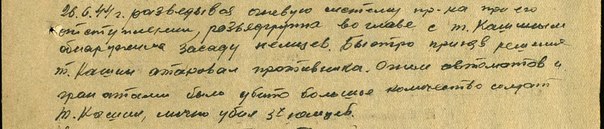 26.6.44 г. разведывая огневую систему пр-ка при его
отступлении, разведгруппа во главе с т. Кашиным
обнаружила засаду немцев. Быстро приняв решение
т. Кашин атаковал противника. Огнем автоматов и
гранатами было убито большое количество солдат
т. Кашин, лично убил 3х немцев.